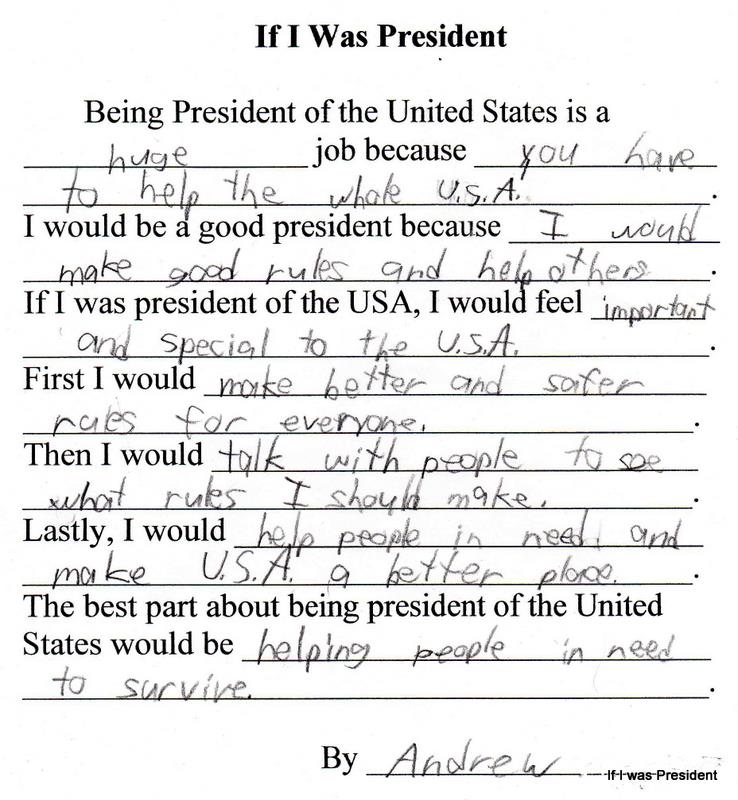 If I Was President
Being President of the United States is a
huge job because you have
to help the whole U.S.A. .
I would be a good president because I would
make good rules and help others .
If I was president of the USA, I would feel important
and special to the U.S.A. .
First I would make better and safer
rules for everyone. .
Then I would talk with people to see
what rules I should make. .
Lastly, I would help people in need and
make U.S.A. a better place. .
The best part about being president of the United
States would be helping people in need
to survive. .
By Andrew
If I was President